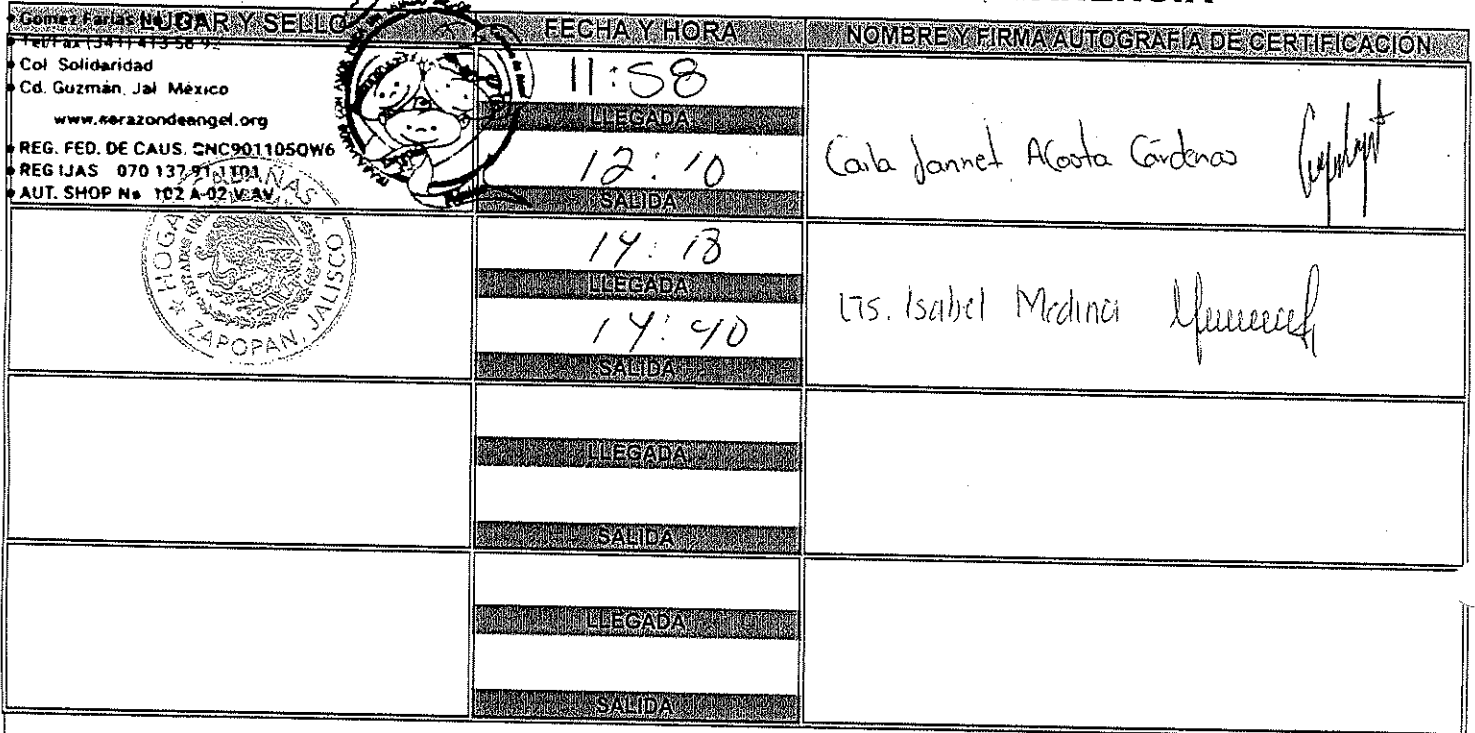 LUGAR Y SELLO
FECHA Y HORA
NOMBRE Y FIRMA AUTOGRAFIA DE CERTIFICACIÓN
Gomez Farias No.
Tel/Fax (341) 413 58 92
Col Solidaridad
Cd. Guzmán, Jal México
REG. FED. DE CAUS. CNC901105QW6
REG IJAS 070 137 91 1101
AUT. SHOP No 102 A-02
11:58
LLEGADA
12:10
SALIDA
Carla Jannet Acosta Cárdenas
HOGAR CABAÑAS
ZAPOPAN, JALISCO
14:18
LLEGADA
14:40
SALIDA
LTS. Isabel Medina
LLEGADA
SALIDA
LLEGADA
SALIDA